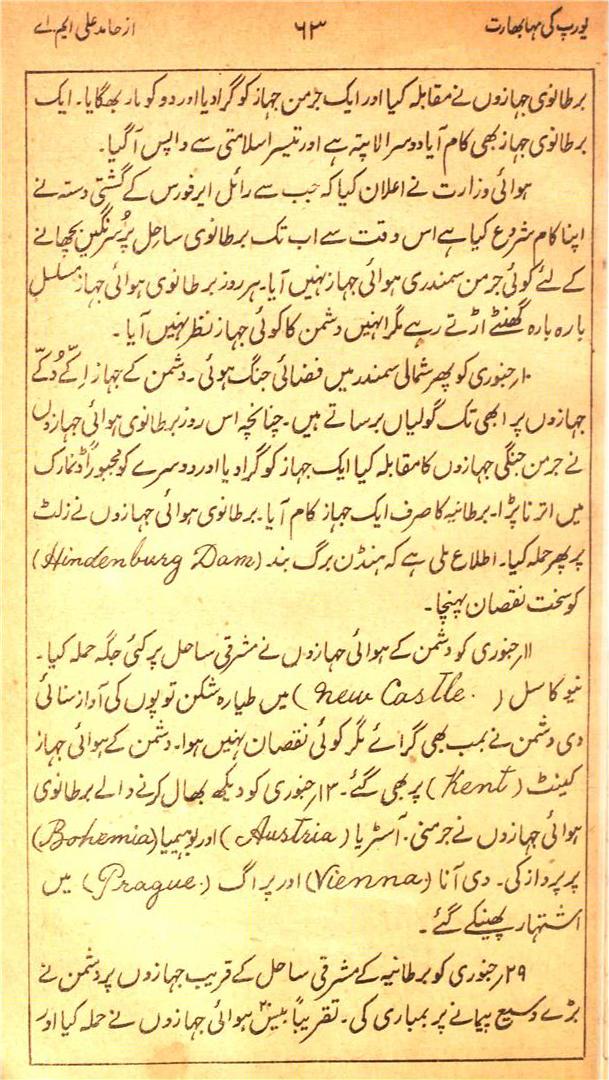 یورپ کی مہابھارت ۶۳ از حامد علی ایم۔ اے
برطانوی جہازوں نے مقابلہ کیا اور ایک جرمن جہاز کو گرا دیا اور دو کو مار بھگایا۔ ایک
برطانوی جہاز بھی کام آیا دوسرا لاپتہ ہے اور تیسرا سلامتی سے واپس آگیا۔
ہوائی وزارت نے اعلان کیا کہ جب سے رائل ایر فورس کے گشتی دستہ نے
اپنا کام شروع کیا ہے اس وقت سے اب تک برطانوی ساحل پر سُرنگیں بچھانے
کے لئے کوئی جرمن سمندری ہوائی جہاز نہیں آیا۔ ہر روز برطانوی ہوائی جہاز مسلسل
بارہ بارہ گھنٹے اڑتے رہے مگر انہیں دشمن کا کوئی جہاز نظر نہیں آیا۔
۱۰ر جنوری کو پھر شمالی سمندر میں فضائی جنگ ہوئی۔ دشمن کے جہاز اِکّے دُکّے
جہازوں پر ابھی تک گولیاں برساتے ہیں۔ چنانچہ اس روز برطانوی ہوائی جہازوں
نے جرمن جنگی جہازوں کا مقابلہ کیا ایک جہاز کو گرا دیا اور دوسرے کو مجبوراً ڈنمارک
میں اترنا پڑا۔ برطانیہ کا صرف ایک جہاز کام آیا۔ برطانوی ہوائی جہازوں نے زلٹ
پر پھر حملہ کیا۔ اطلاع ملی ہے کہ ہنڈن برگ بند (Hindenburg Dam)
کو سخت نقصان پہنچا۔
۱۱ر جنوری کو دشمن کے ہوائی جہازوں نے مشرقی ساحل پر کئی جگہ حملہ کیا۔
نیو کاسل (New Castle.) میں طیارہ شکن توپوں کی آواز سنائی
دی دشمن نے بمب بھی گرائے مگر کوئی نقصان نہیں ہوا۔ دشمن کے ہوائی جہاز
کینٹ (Kent) پر بھی گئے۔ ۱۳ر جنوری کو دیکھ بھال کرنے والے برطانوی
ہوائی جہازوں نے جرمنی۔ آسٹریا (Austria) اور بوہیمیا (Bohemia)
پر پرواز کی۔ وی آنا (Vienna) اور پراگ (Prague.) میں
اشتہار پھینکے گئے۔
۲۹ر جنوری کو برطانیہ کے مشرقی ساحل کے قریب جہازوں پر دشمن نے
بڑے وسیع پیمانے پر بمباری کی۔ تقریباً بیس ۲۰ ہوائی جہازوں نے حملہ کیا اور